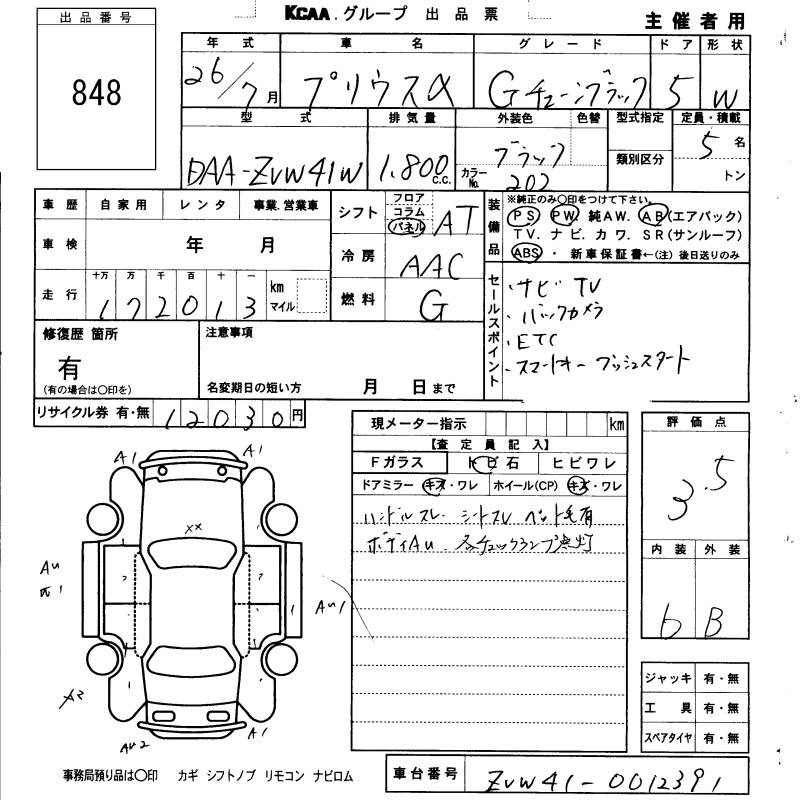 出品番号
848
KCAA グループ 出品票
主催者用
年式 車名 グレード ドア 形状
26/7月 プリウスα Gチューンブラック 5 W
型式 排気量 外装色 色替 型式指定 定員・積載
DAA-ZVW41W 1,800c.c. ブラック 5名
カラーNo. 202 類別区分 トン
車歴 自家用 レンタ 事業.営業車
シフト フロア コラム パネル AT
装備品 ※純正のみ〇印をつけて下さい。
PS PW 純AW. AB(エアバック)
TV. ナビ. カワ. SR(サンルーフ)
ABS・新車保証書←(注)後日送りのみ
車検 年 月
冷房 AAC
走行 十万 万 千 百 十 一
172013 km マイル
燃料 G
セールスポイント
・ナビ TV
・バックカメラ
・ETC
・スマートキー プッシュスタート
修復歴 箇所
有
(有の場合は〇印を)
注意事項
名変期日の短い方 月 日まで
リサイクル券 有・無 12030円
現メーター指示 km
【査定員記入】
Fガラス トビ石 ヒビワレ
ドアミラー キズ・ワレ ホイール(CP) キズ・ワレ
ハンドルスレ. シートスレ ペット毛有
ボディAU. チェックランプ点灯
評価点
3.5
内装 外装
6 B
A1 A1
XX
AU
AU1
AU2 A1
ジャッキ 有・無
工具 有・無
スペアタイヤ 有・無
事務局預り品は〇印 カギ シフトノブ リモコン ナビロム
車台番号 ZVW41-0012391